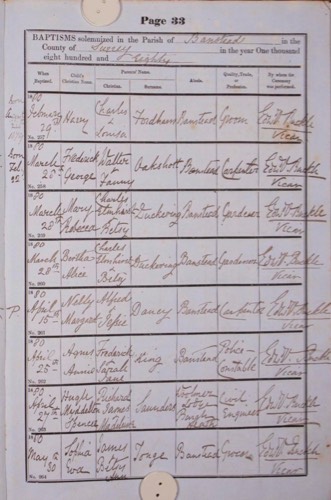 Page 33
BAPTISMS solemnized in the Parish of Banstead in the
County of Surrey in the year One thousand
eight hundred and Eighty
When Baptized. Child's Christian Name. Parents' Names. Abode. Quality, Trade, or Profession. By whom the Ceremony was performed.
Christian. Surname.
1880 Charles
February Harry Fordham Banstead Groom Edw V Buckle
29th Louisa Vicar
No. 257
1880
Born March Frederick Walter Oakshott Banstead Carpenter Edw V Buckle
Feb. 28th George Fanny Vicar
22
No. 258
1880 Charles
March Mary Duckering Banstead Gardener Edw V Buckle
28th Rebecca Betsy Vicar
No. 259
1880 Charles
March Bertha Duckering Banstead Gardener Edw V Buckle
28th Alice Betsy Vicar
No. 260
1880
P. April Nelly Alfred Dancy Banstead Carpenter Edw V Buckle
15th Margaret Vicar
No. 261
1880
April Agnes Frederick King Banstead Police Edw V Buckle
25th Annie Sarah Constable Vicar
Jane
No. 262
1880
April Hugh Richard Saunders Civil Edw V Buckle
27th Middleton James Engineer Vicar
Spencer Madeline
No. 263
1880
May Sophia James Tonge Banstead Grocer Edw V Buckle
30 Eva Betsy Vicar
No. 264